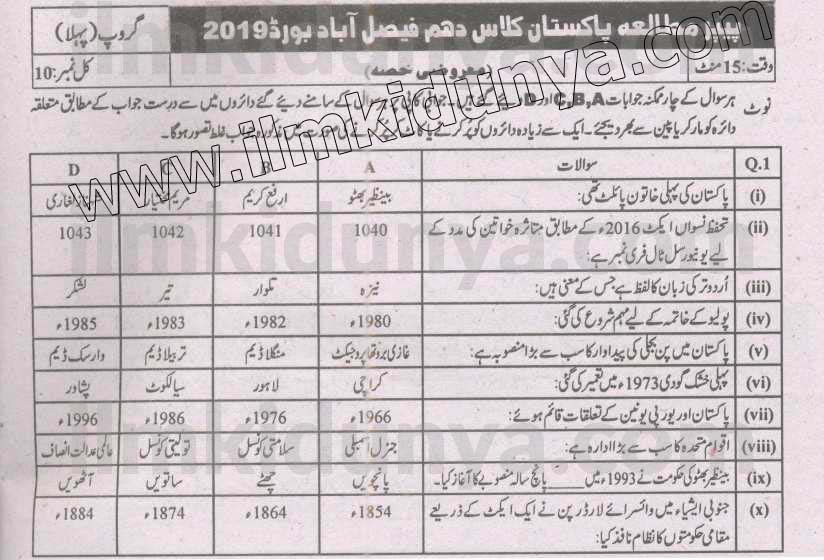 پیپر مطالعہ پاکستان کلاس دہم فیصل آباد بورڈ 2019 گروپ (پہلا)
وقت: 15 منٹ (معروضی حصہ) کل نمبر: 10
نوٹ ہر سوال کے چار ممکنہ جوابات C,B,A اور D دیئے گئے ہیں۔ جوابی کاپی پر ہر سوال کے سامنے دیئے گئے دائروں میں سے درست جواب کے مطابق متعلقہ
دائرہ کو مارکر یا پین سے بھر دیجئے۔ ایک سے زیادہ دائروں کو پُر کرنے یا کاٹ کر پُر کرنے کی صورت میں مذکورہ جواب غلط تصور ہو گا۔
www.ilmkidunya.com
Q.1 سوالات A B C D
(i) پاکستان کی پہلی خاتون پائلٹ تھی: بینظیر بھٹو ارفع کریم مریم مختیار لغاری
(ii) تحفظ نسواں ایکٹ 2016ء کے مطابق متاثرہ خواتین کی مدد کے 1040 1041 1042 1043
لیے یونیورسل ٹال فری نمبر ہے:
(iii) اُردو ترکی زبان کا لفظ ہے جس کے معنی ہیں: نیزہ تلوار تیر لشکر
(iv) پولیو کے خاتمہ کے لیے مہم شروع کی گئی: 1980ء 1982ء 1983ء 1985ء
(v) پاکستان میں پن بجلی کی پیداوار کا سب سے بڑا منصوبہ ہے: غازی بروتھا پروجیکٹ منگلا ڈیم تربیلا ڈیم وارسک ڈیم
(vi) پہلی خشک گودی 1973ء میں تعمیر کی گئی: کراچی لاہور سیالکوٹ پشاور
(vii) پاکستان اور یورپی یونین کے تعلقات قائم ہوئے: 1966ء 1976ء 1986ء 1996ء
(viii) اقوام متحدہ کا سب سے بڑا ادارہ ہے: جنرل اسمبلی سلامتی کونسل تولیتی کونسل عالمی عدالت انصاف
(ix) بینظیر بھٹو کی حکومت نے 1993ء میں ____ پانچ سالہ منصوبے کا آغاز کیا۔ پانچویں چھٹے ساتویں آٹھویں
(x) جنوبی ایشیاء میں وائسرائے لارڈ رپن نے ایک ایکٹ کے ذریعے 1854ء 1864ء 1874ء 1884ء
مقامی حکومتوں کا نظام نافذ کیا:
ilmkidunya.com